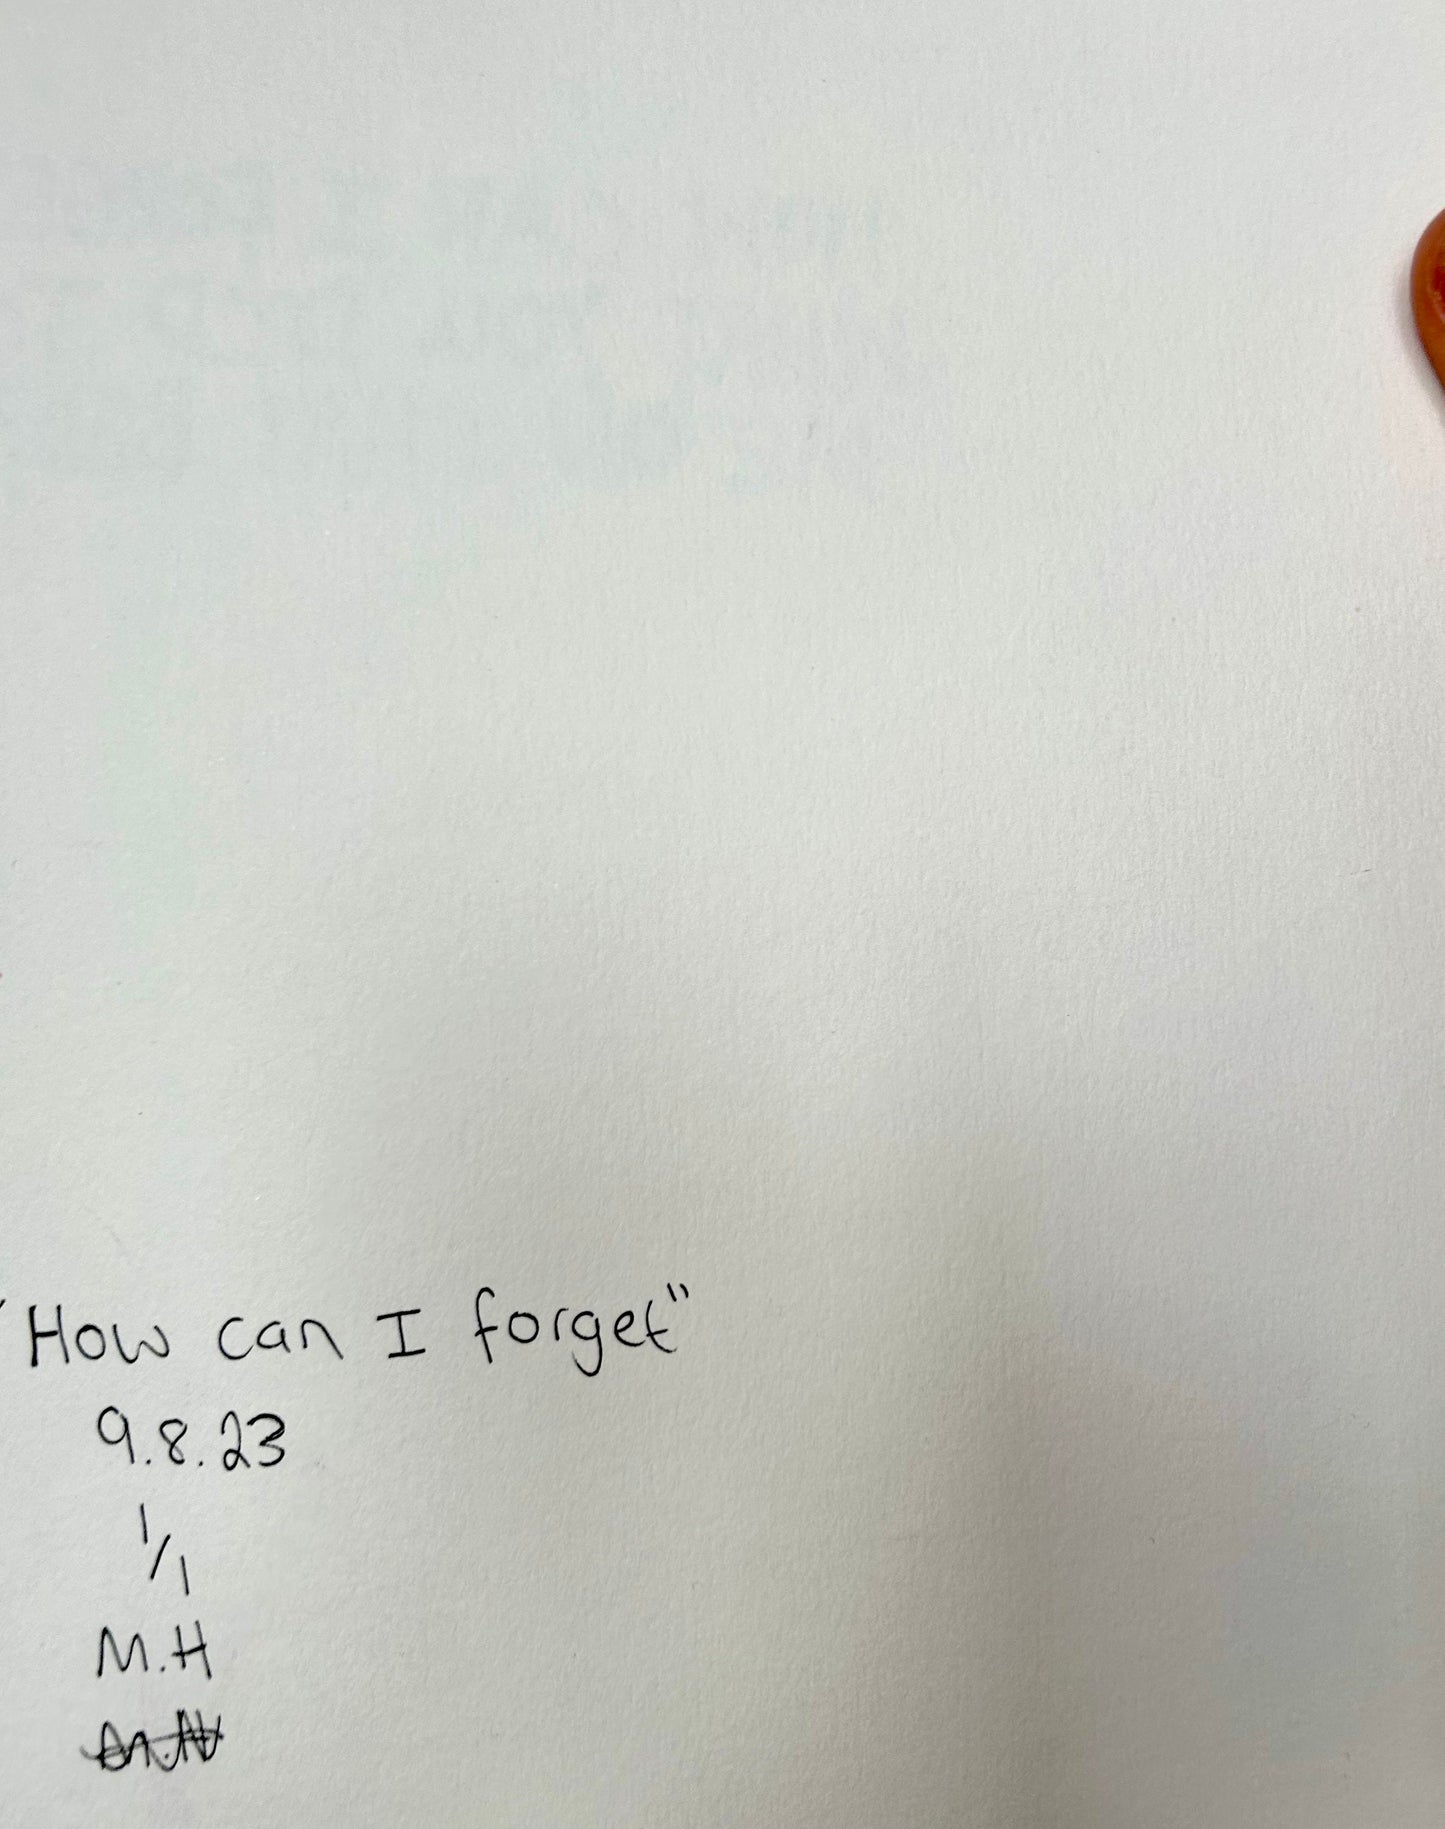 "How can I forget"
9.8.23
1/1
M.H